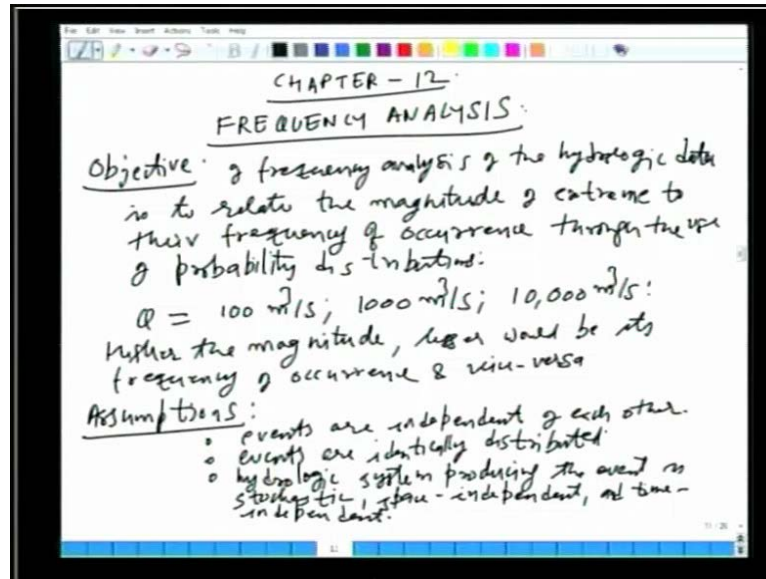 File Edit View Insert Actions Tools Help
CHAPTER - 12.
FREQUENCY ANALYSIS.
Objective. of frequency analysis of the hydrologic data
is to relate the magnitude of extreme to
their frequency of occurrence through the use
of probability distributions.
Q = 100 m³/s; 1000 m³/s; 10,000 m³/s.
Higher the magnitude, lesser would be its
frequency of occurrence & vice-versa
Assumptions:
• events are independent of each other.
• events are identically distributed.
• hydrologic system producing the event is
stochastic, space-independent, and time-
independent.